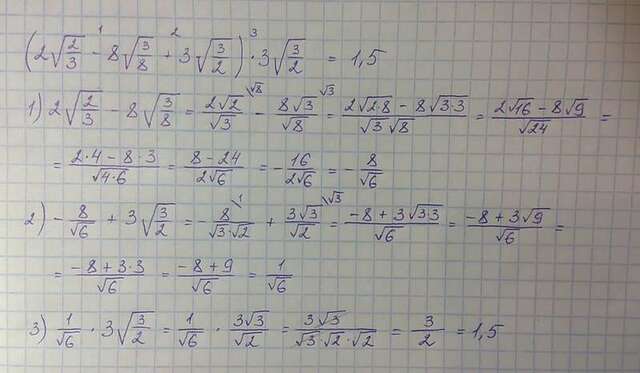 (2√(2/3) - 8√(3/8) + 3√(3/2)) · 3√(3/2) = 1,5
1) 2√(2/3) - 8√(3/8) = 2√2/√3 - 8√3/√8 = (2√(2·8) - 8√(3·3))/(√3√8) = (2√16 - 8√9)/√24 =
= (2·4 - 8·3)/√(4·6) = (8 - 24)/(2√6) = -16/(2√6) = -8/√6
2) -8/√6 + 3√(3/2) = -8/(√3·√2) + 3√3/√2 = (-8 + 3√(3·3))/√6 = (-8 + 3√9)/√6 =
= (-8 + 3·3)/√6 = (-8 + 9)/√6 = 1/√6
3) 1/√6 · 3√(3/2) = 1/√6 · 3√3/√2 = 3√3/(√3·√2·√2) = 3/2 = 1,5